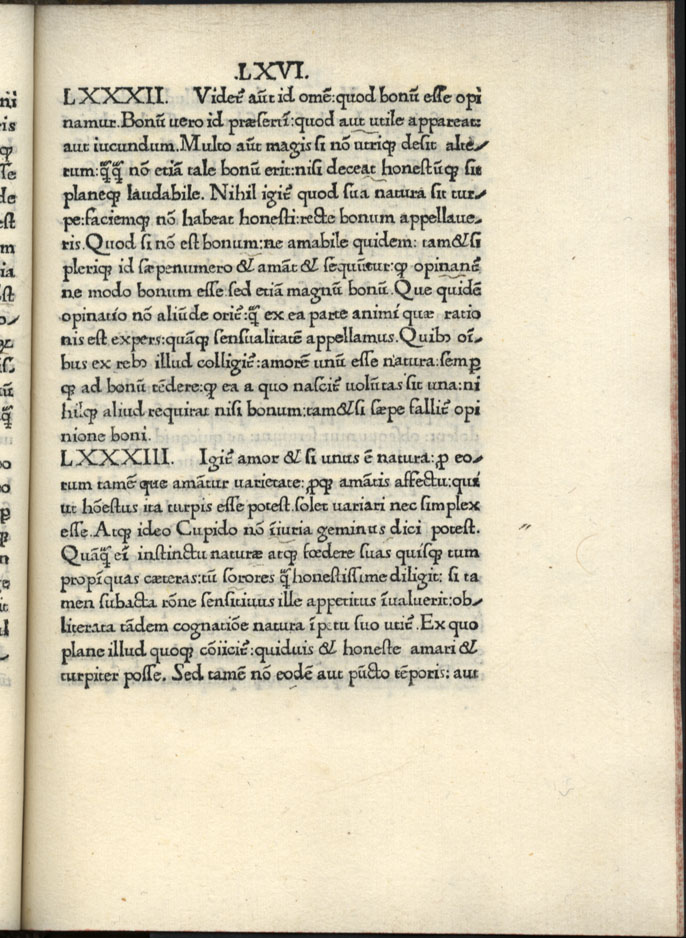 .LXVI.
LXXXII. Videt᷑ aūt id omē:quod bonū esse opi
namur.Bonū uero id præsertī:quod aut utile appareat:
aut iucundum.Multo aūt magis si nō utriqꝫ desit alte⸗
rum:q̄q̄ nō etiā tale bonū erit:nisi deceat honestūqꝫ sit
planeqꝫ laudabile. Nihil igit᷑ quod sua natura sit tur⸗
pe:faciemqꝫ nō habeat honesti:recte bonum appellaue⸗
ris.Quod si nō est bonum:ne amabile quidem: tam&si
pleriqꝫ id sæpenumero & amāt & sequūtur:qꝫ opinant᷑
ne modo bonum esse:sed etiā magnū bonū.Que quidē
opinatio nō aliūde orit᷑:q̄ ex ea parte animi quæ ratio
nis est expers:quāqꝫ sensualitatē appellamus.Quibꝫ oī⸗
bus ex rebꝫ illud colligit᷑:amorē unū esse natura:semꝑ
qꝫ ad bonū tēdere:qꝫ ea a quo nascit᷑ uolūtas sit una:ni
hilqꝫ aliud requirat nisi bonum:tam&si sæpe fallit᷑ opi
nione boni.
LXXXIII. Igit᷑ amor & si unus ē natura:ꝓ eo⸗
rum tamē que amātur uarietate:ꝓqꝫ amātis affectu:qui
ut hōestus ita turpis esse potest.solet uariari nec simplex
esse.Atqꝫ ideo Cupido nō īiuria geminus dici potest.
Quāq̄ eī instinctu naturæ atqꝫ fœdere suas quisqꝫ tum
propīquas cæteras:tū sorores q̄ honestissime diligit: si ta
men subacta rōne sensitiuus ille appetitus īualuerit:ob⸗
literata tādem cognatiōe natura īpetu suo utit᷑.Ex quo
plane illud quoqꝫ cōiicit᷑:quiduis & honeste amari &
turpiter posse. Sed tamē nō eodē aut pūcto tēporis: aut